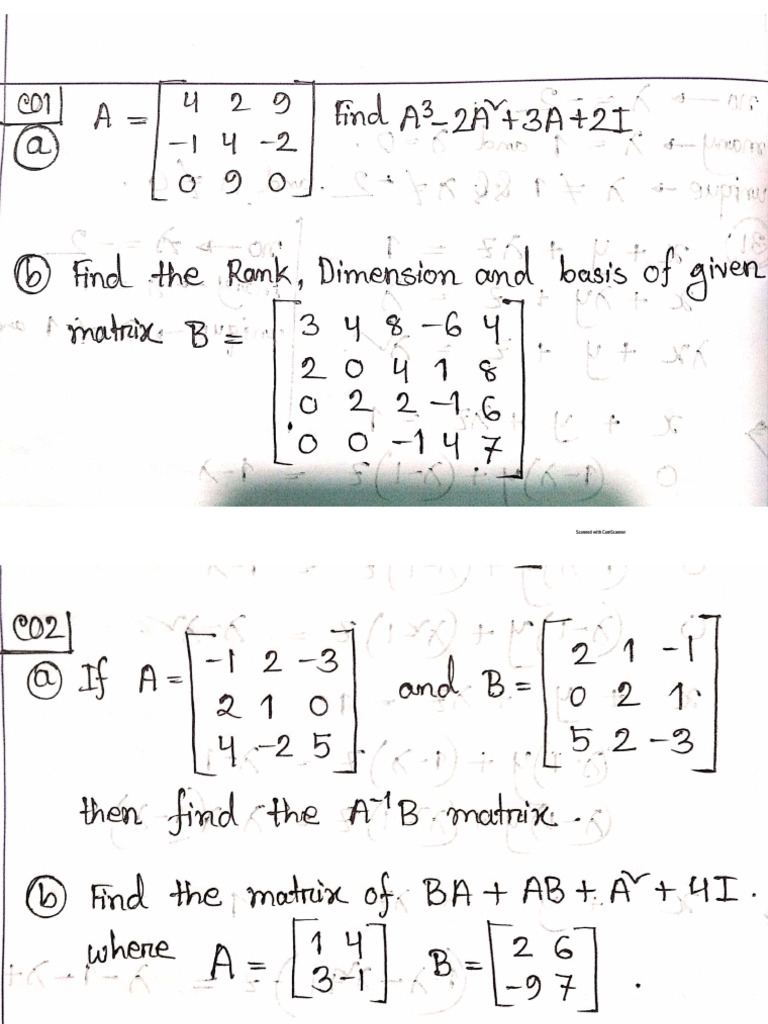 CO1
(a) A = [4 2 9 Find A³-2A²+3A+2I
-1 4 -2
0 9 0].
(b) Find the Rank, Dimension and basis of given
matrix B = [3 4 8 -6 4
2 0 4 1 8
0 2 2 -1 6
0 0 -1 4 7]
Scanned with CamScanner
CO2
(a) If A = [-1 2 -3 and B = [2 1 -1
2 1 0 0 2 1
4 -2 5]. 5 2 -3]
then find the A⁻¹B matrix.
(b) Find the matrix of BA + AB + A² + 4I.
where A = [1 4 B = [2 6
3 -1] -9 7].